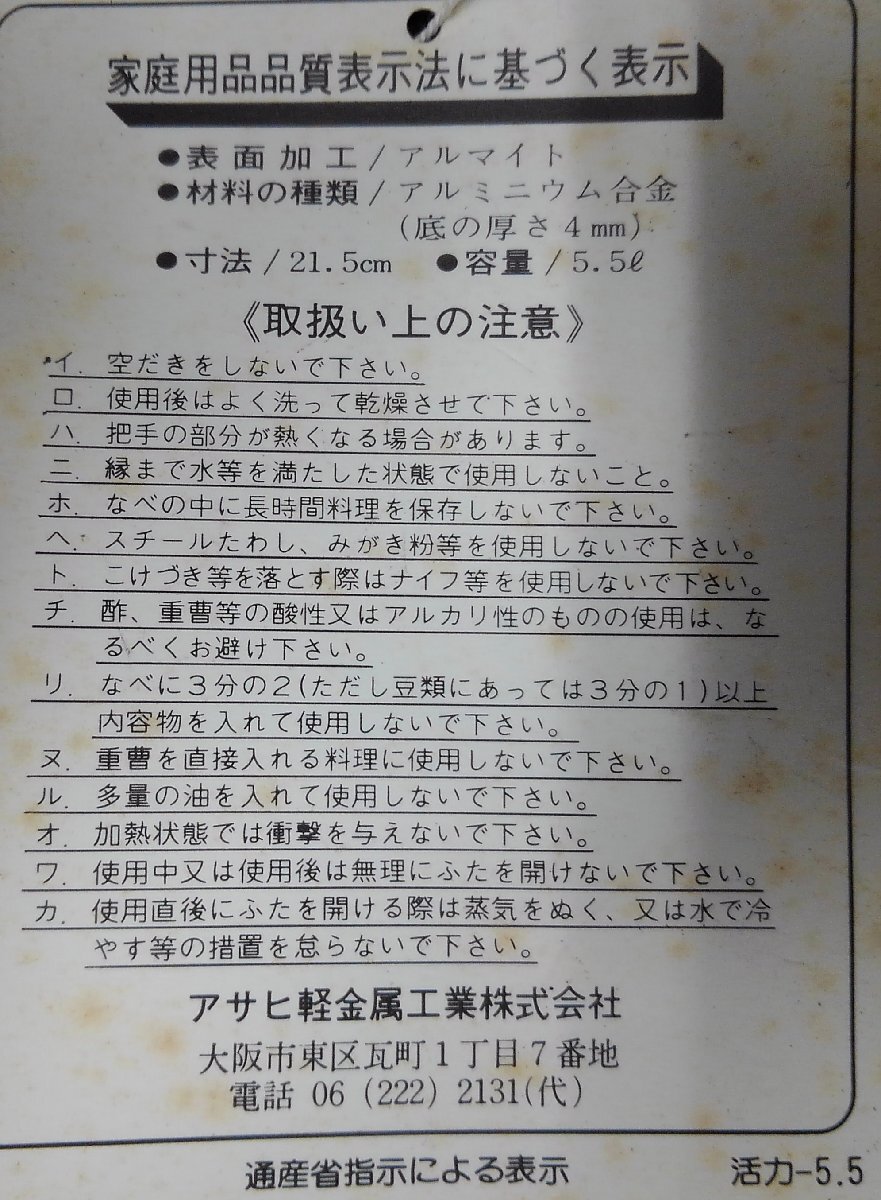 家庭用品品質表示法に基づく表示
●表面加工/アルマイト
●材料の種類/アルミニウム合金
(底の厚さ4mm)
●寸法/21.5cm ●容量/5.5ℓ
《取扱い上の注意》
イ. 空だきをしないで下さい。
ロ. 使用後はよく洗って乾燥させて下さい。
ハ. 把手の部分が熱くなる場合があります。
ニ. 縁まで水等を満たした状態で使用しないこと。
ホ. なべの中に長時間料理を保存しないで下さい。
ヘ. スチールたわし、みがき粉等を使用しないで下さい。
ト. こげづき等を落とす際はナイフ等を使用しないで下さい。
チ. 酢、重曹等の酸性又はアルカリ性のものの使用は、な
るべくお避け下さい。
リ. なべに3分の2(ただし豆類にあっては3分の1)以上
内容物を入れて使用しないで下さい。
ヌ. 重曹を直接入れる料理に使用しないで下さい。
ル. 多量の油を入れて使用しないで下さい。
オ. 加熱状態では衝撃を与えないで下さい。
ワ. 使用中又は使用後は無理にふたを開けないで下さい。
カ. 使用直後にふたを開ける際は蒸気をぬく、又は水で冷
やす等の措置を怠らないで下さい。
アサヒ軽金属工業株式会社
大阪市東区瓦町1丁目7番地
電話 06 (222) 2131(代)
通産省指示による表示 活力-5.5